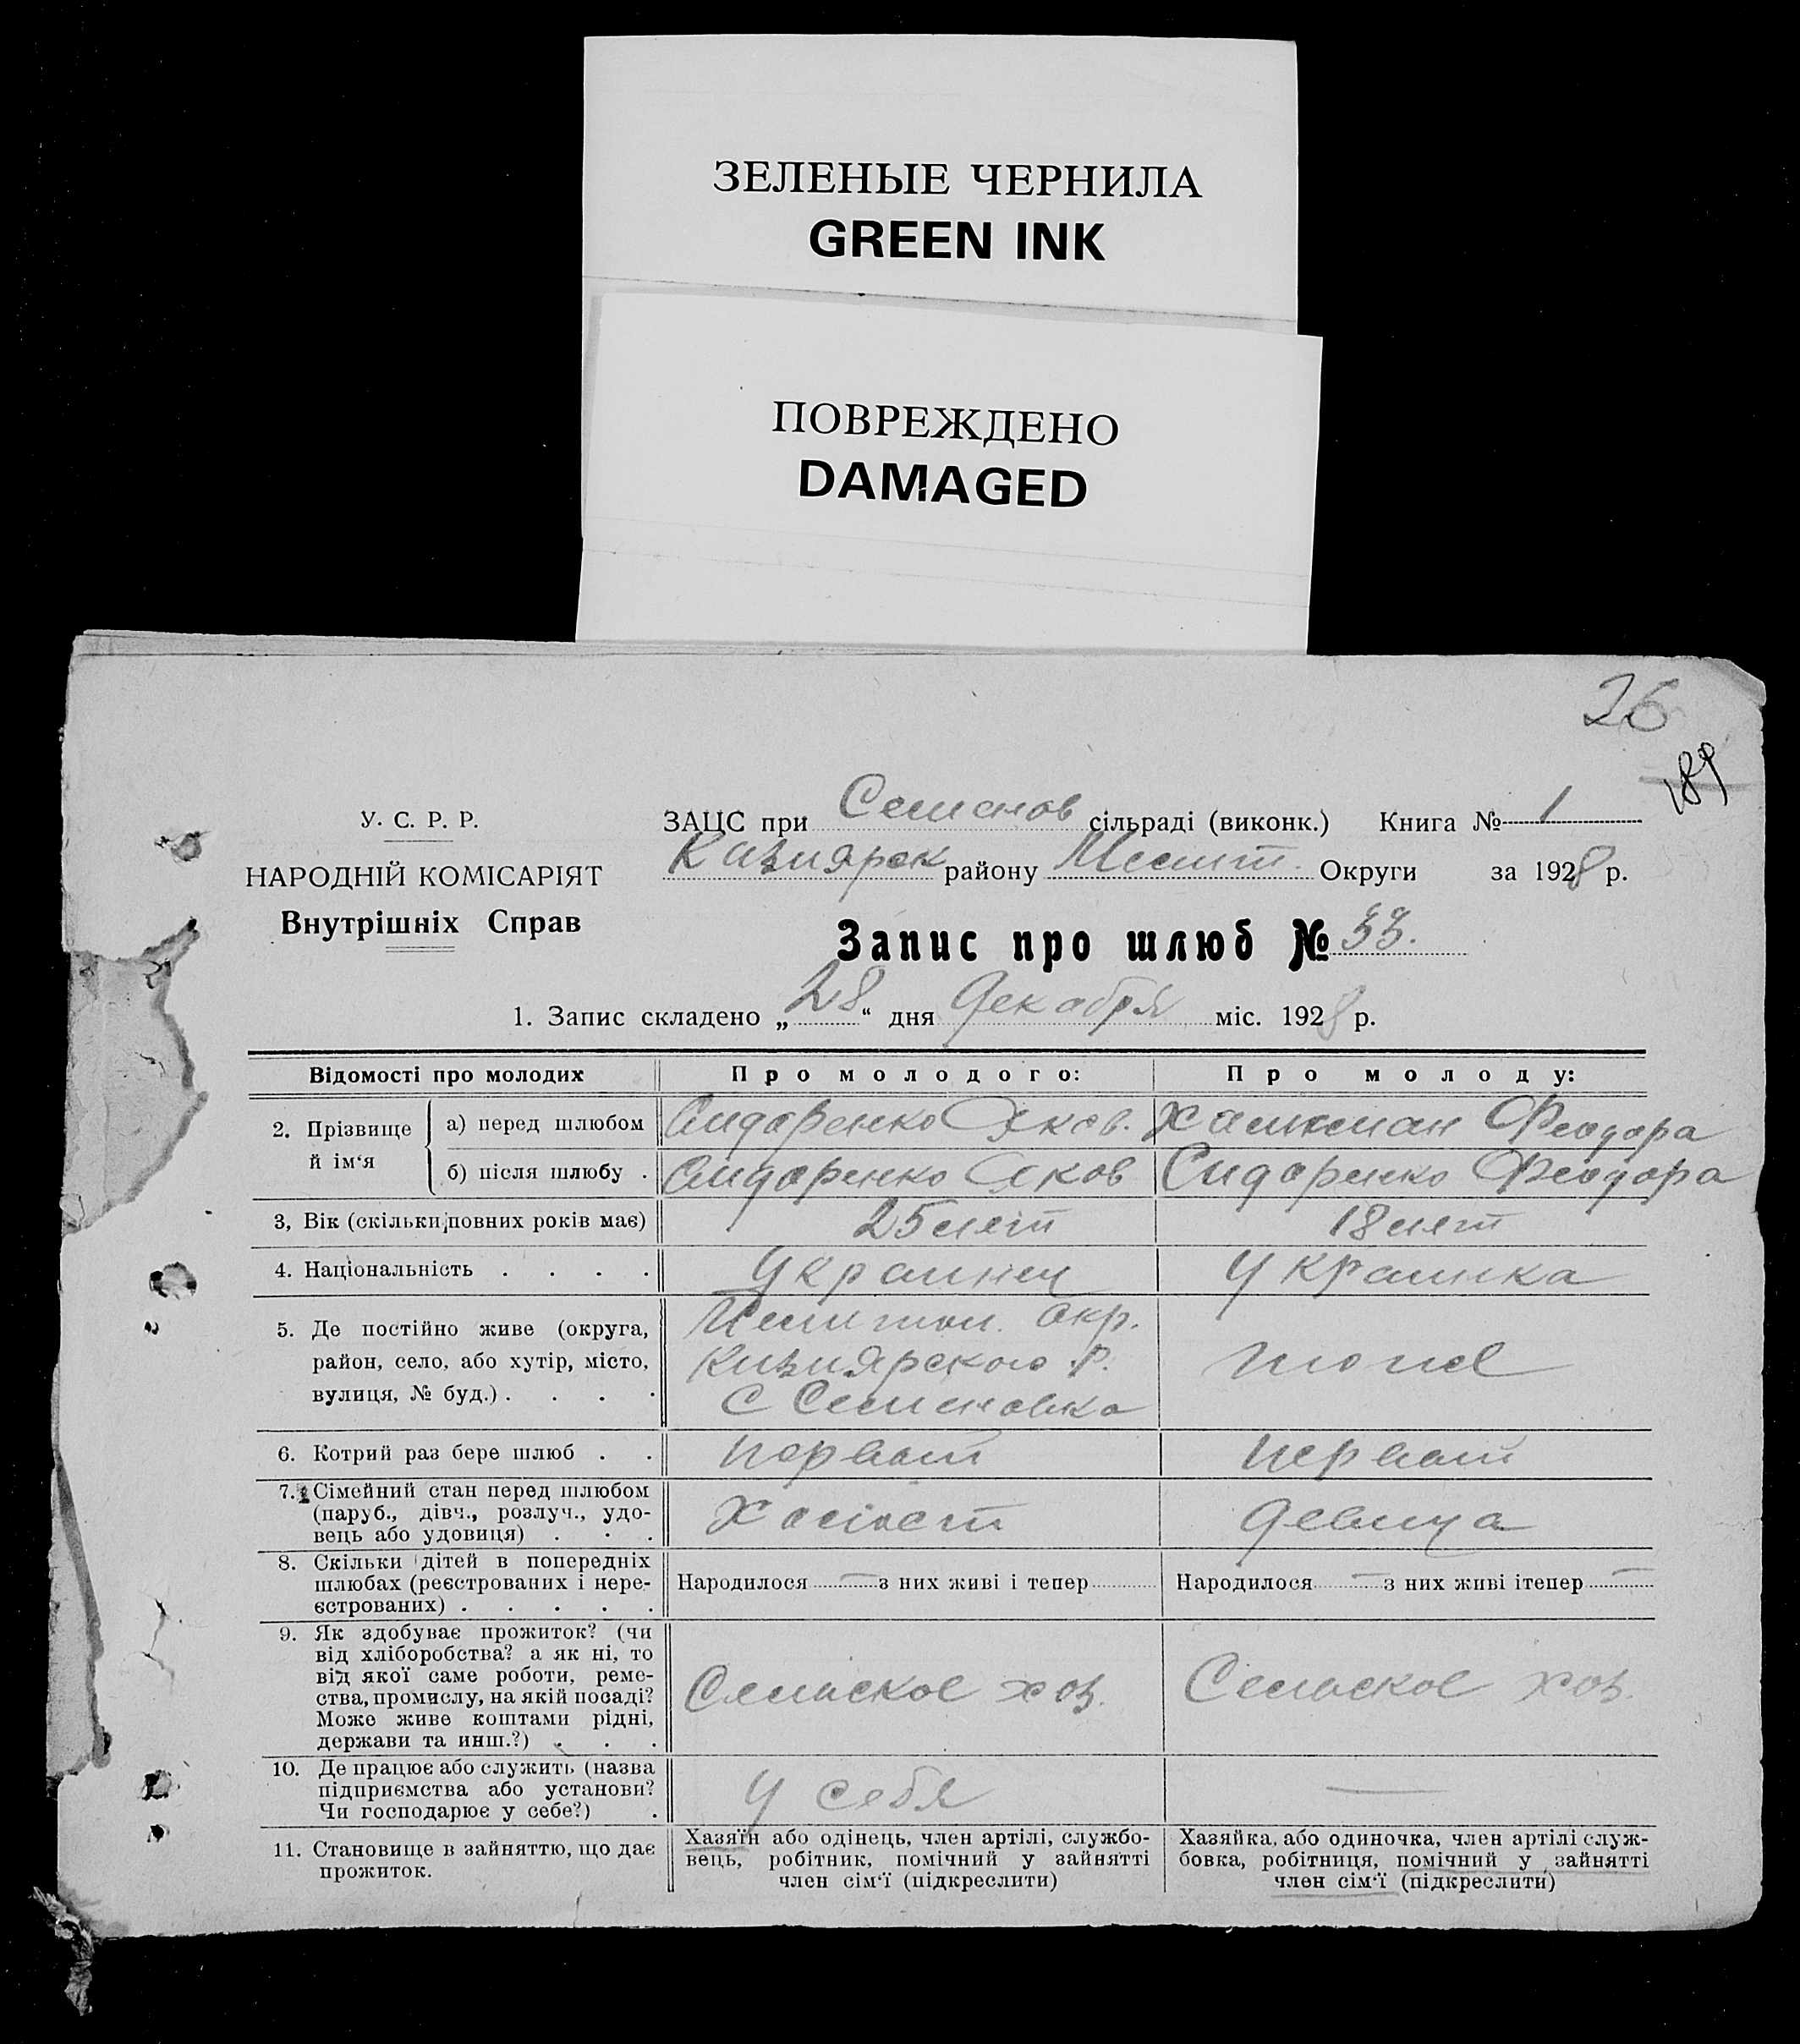 ЗЕЛЕНЫЕ ЧЕРНИЛА
GREEN INK
ПОВРЕЖДЕНО
DAMAGED
26
189
У. С. Р. Р.
НАРОДНІЙ КОМІСАРІЯТ
Внутрішніх Справ
ЗАЦС при Семенов сільраді (виконк.) Книга № 1
Кизиярск району Мелит. Округи за 1928 р.
Запис про шлюб № 33.
1. Запис складено „28“ дня Декабря міс. 1928 р.
Відомості про молодих Про молодого: Про молоду:
2. Прізвище й ім‘я
а) перед шлюбом Сидоренко Яков. Феодора
б) після шлюбу . Сидоренко Яков Сидоренко Феодора
3, Вік (скільки повних років має) 25 лет 18 лет
4. Національність . . . . Украинец Украинка
5. Де постійно живе (округа,
район, село, або хутір, місто,
вулиця, № буд.) . . . .
Мелитоп. окр.
Кизиярского р.
С Семеновка
тоже
6. Котрий раз бере шлюб . . первый первый
7. Сімейний стан перед шлюбом
(паруб., дівч., розлуч., удо-
вець або удовиця) . . .
Холост
девица
8. Скільки дітей в попередніх
шлюбах (реєстрованих і нере-
єстрованих) . . . . .
Народилося — з них живі і тепер
Народилося — з них живі ітепер —
9. Як здобуває прожиток? (чи
від хліборобства? а як ні, то
від якої саме роботи, реме-
ства, промислу, на якій посаді?
Може живе коштами рідні,
держави та инш.?) . . .
Сельское хоз.
Сельское хоз.
10. Де працює або служить (назва
підприємства або установи?
Чи господарює у себе?) .
у себя
—
11. Становище в зайняттю, що дає
прожиток.
Хазяїн або одінець, член артілі, службо-
вець, робітник, помічний у зайнятті
член сім‘ї (підкреслити)
Хазяйка, або одиночка, член артілі служ-
бовка, робітниця, помічний у зайнятті
член сім‘ї (підкреслити)